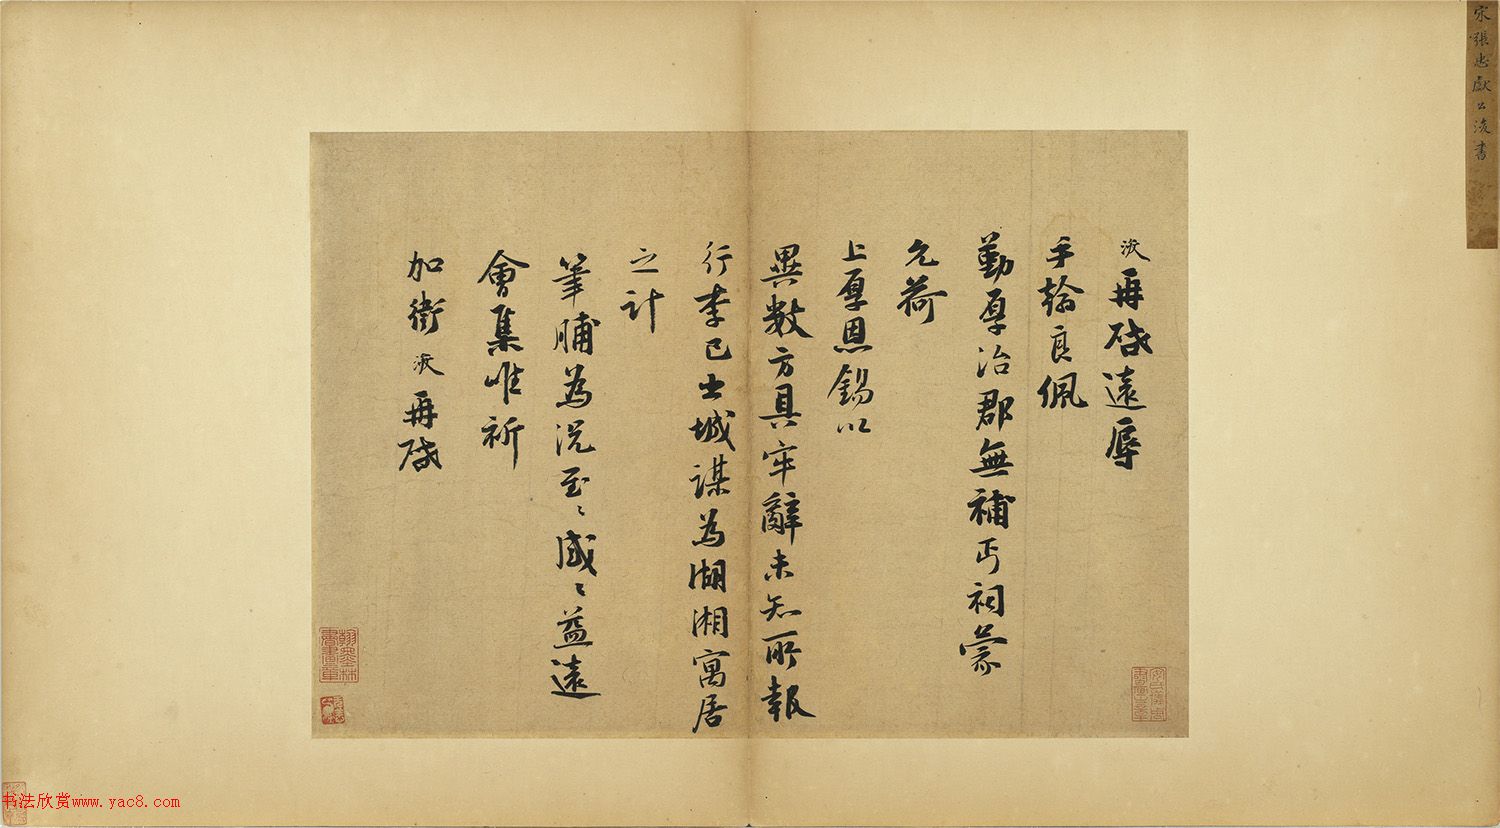 宋張忠獻公浚書
浚再啓遠辱
手翰良佩
勤厚治郡無補丐祠蒙
允荷
上厚恩錫以
異數方具牢辭未知所報
行李已出城謀為湖湘寓居
之計
筆脯為況至〻感〻益遠
會集唯祈
加衛浚再啓
书法欣赏www.yac8.com